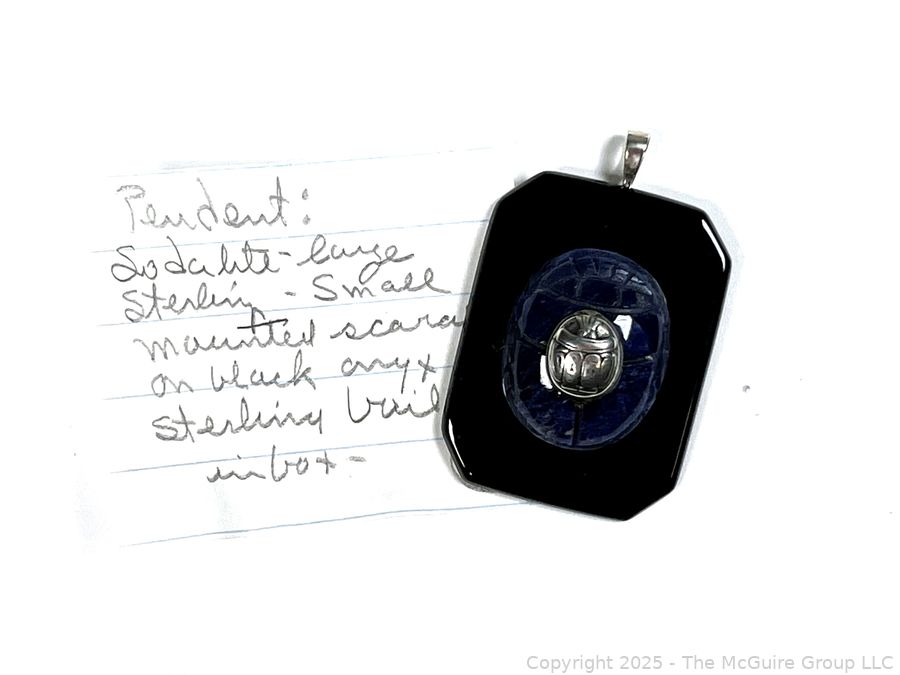 Pendent:
Sodalite - large
Sterling - Small
mounted scara
on black onyx
sterling bail
in box -
Copyright 2025 - The McGuire Group LLC